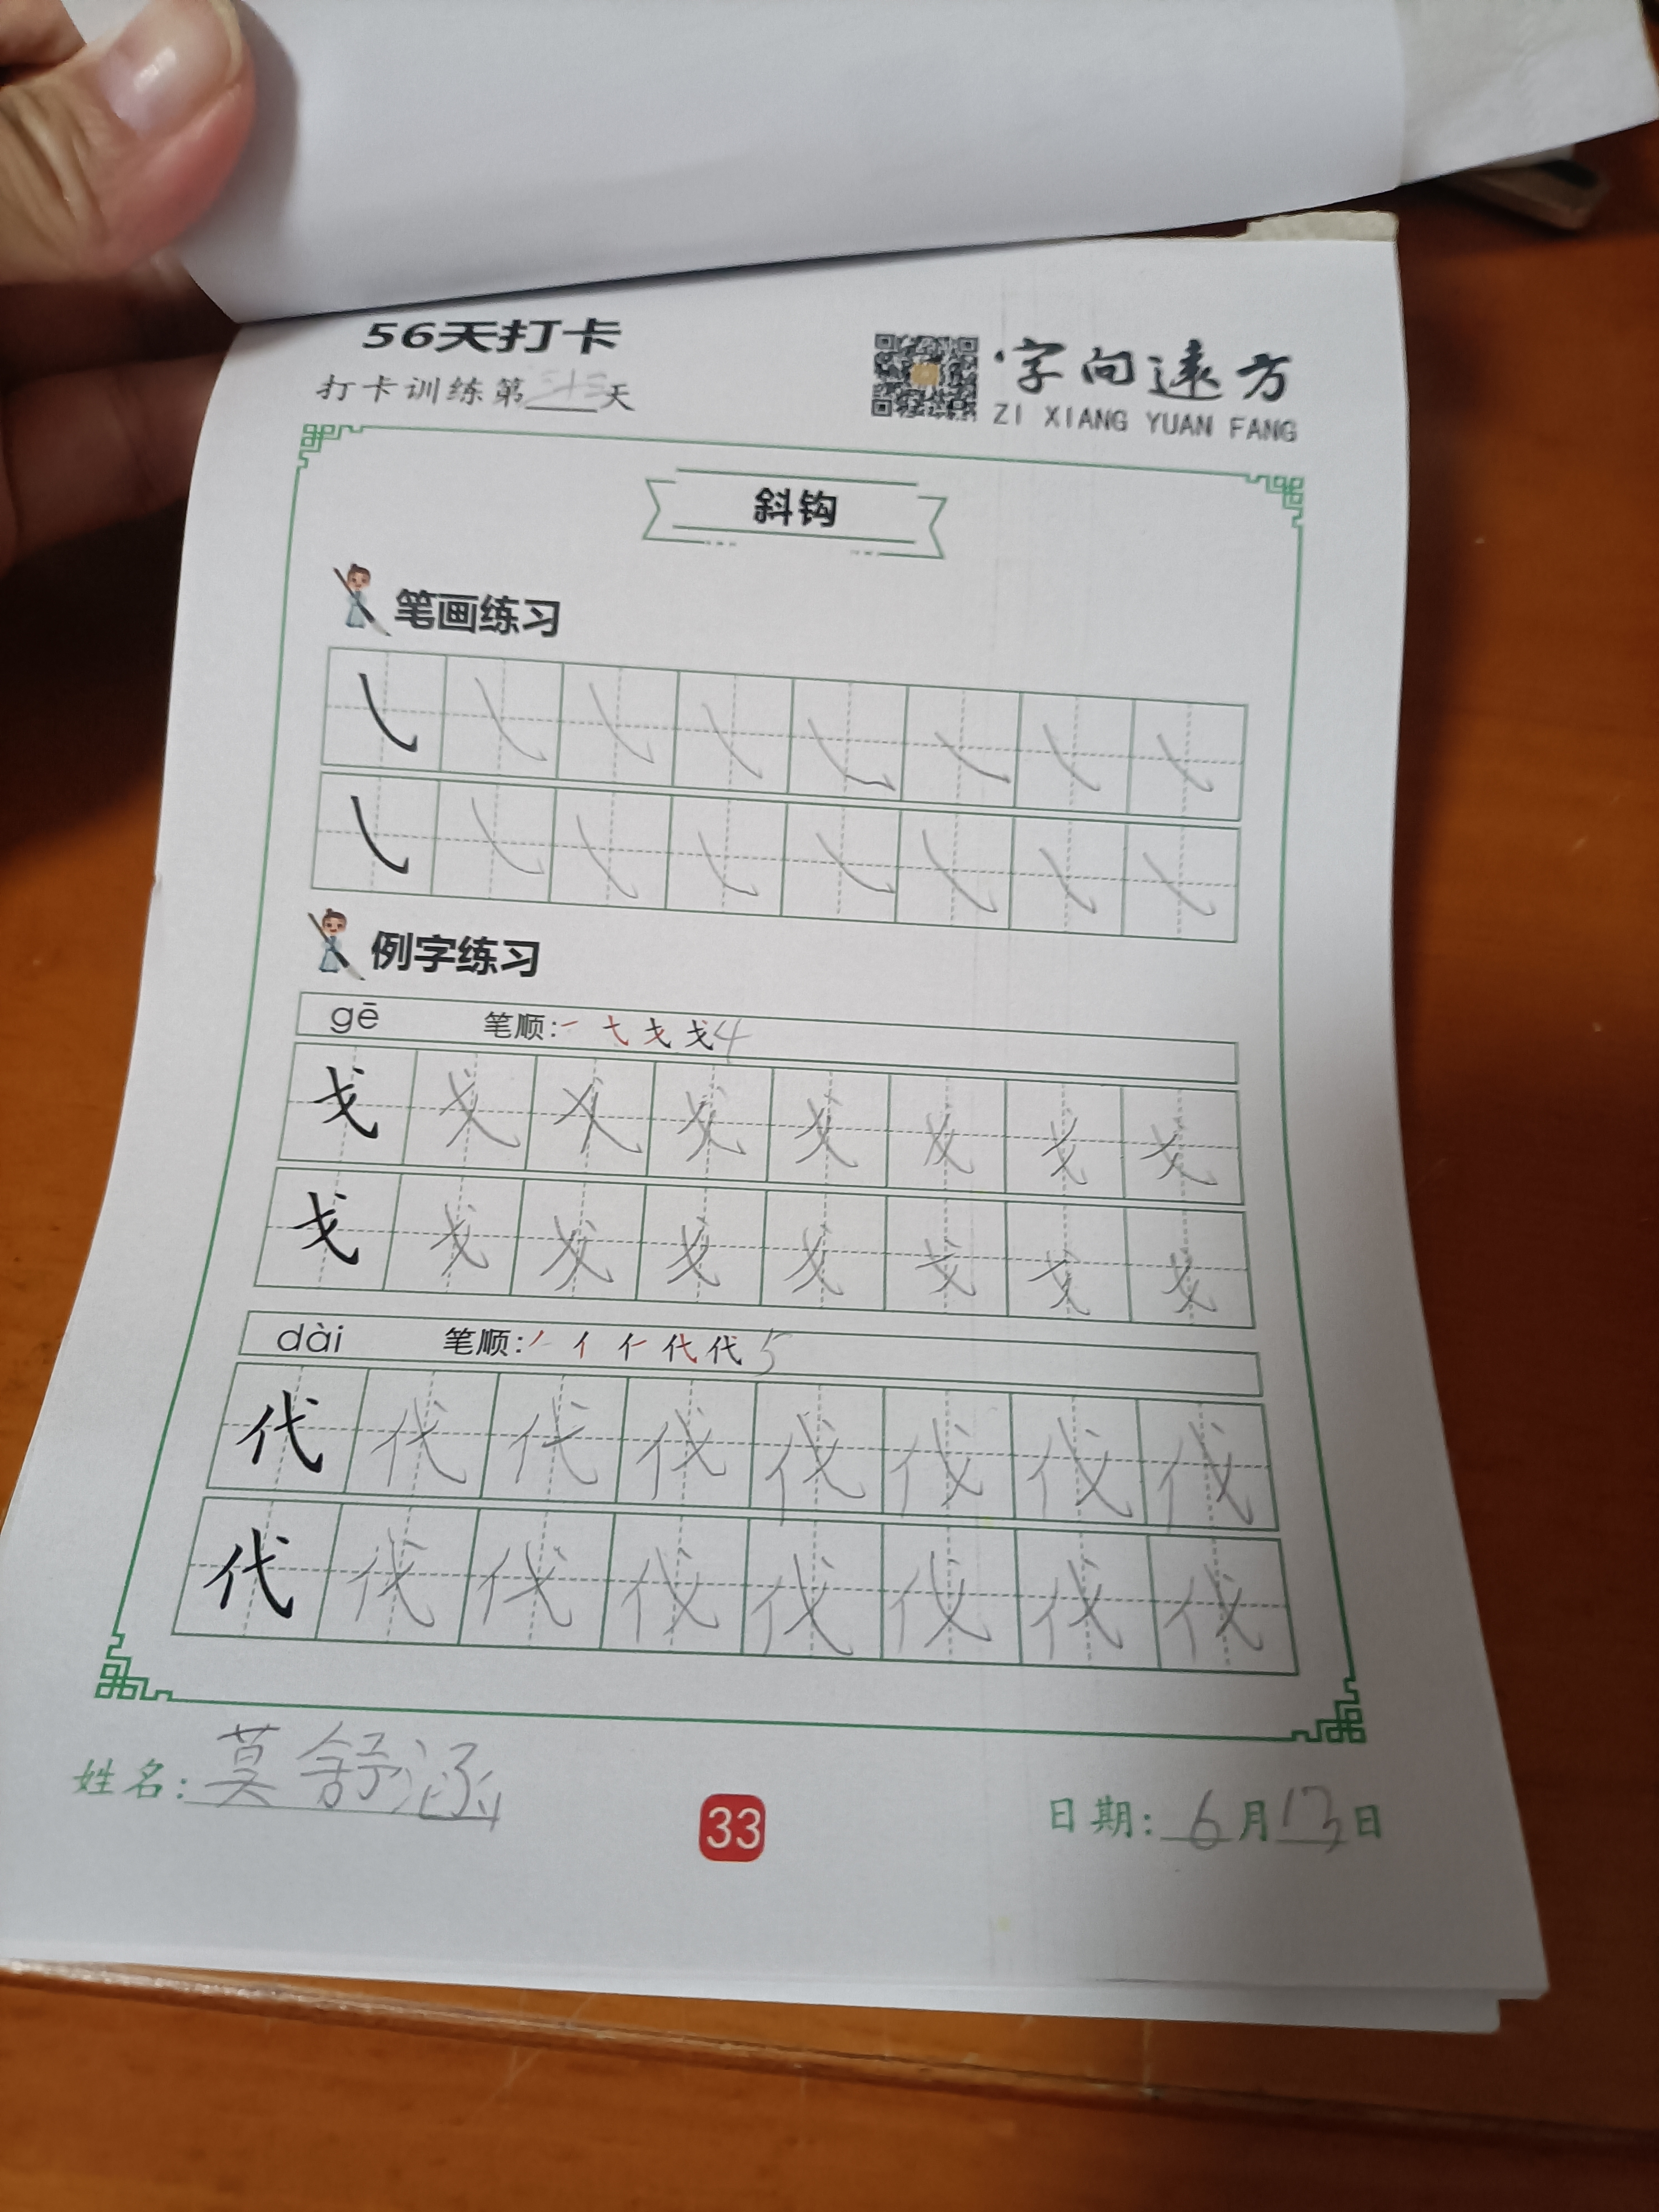 56天打卡
打卡训练第三十三天
字向远方
ZI XIANG YUAN FANG
斜钩
笔画练习
例字练习
gē 笔顺: 一 弋 戈 戈 4
戈 戈 戈 戈 戈 戈 戈 戈
戈 戈 戈 戈 戈 戈 戈 戈
dài 笔顺: 丿 亻 仁 代 代 5
代 代 代 伐 伐 伐 伐 伐
代 伐 代 伐 伐 伐 伐 伐
姓名: 莫舒涵
33
日期: 6月13日